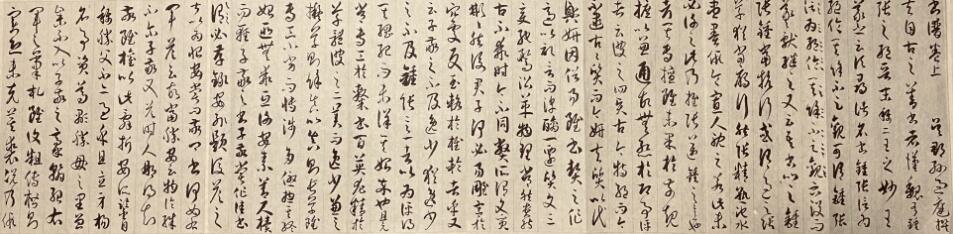 書譜卷上　吳郡孫過庭撰
夫自古之善書者漢魏有鍾
張之絕晉末稱二王之妙王
羲之云頃尋諸名書鍾張信為
絕倫其餘不足觀可謂鍾張
云沒而羲獻繼之又云吾書比之鍾
張鍾當抗行或謂過之張
草猶當雁行然張精熟池水
盡墨假令寡人耽之若此未
必謝之此乃推張邁鍾之意也
考其專擅雖未果於前規
摭以兼通故無慚於即事評
者云彼之四賢古今特絕而今
不逮古古質而今妍夫質以代
興妍因俗易雖書契之作
適以記言而淳醨一遷質文三
變馳騖沿革物理常然貴能
古不乖時今不同弊所謂文質
彬彬然後君子何必易雕宮於
穴處反玉輅於椎輪者乎又
云子敬之不及逸少猶逸少
之不及鍾張意者以為評得
其綱紀而未詳其始卒也且元
常專工於隸書百英尤精於
草體彼之二美而逸少兼之
擬草則餘真比真則長草雖
專工小劣而博涉多優揔其終
始匪無乖互謝安素善尺牘
而輕子敬之書子敬嘗作佳書
與之謂必存錄安輒題後答之
甚以為恨安嘗問敬卿書何如
右軍答云故當勝安云物論殊
不爾子敬又答時人那得知
敬雖權以此辭折安所鑒自
稱勝父不亦過乎且立身揚
名事資尊顯勝母之里曾
參不入以子敬之豪翰紹右
軍之筆札雖復粗傳楷則
實恐未克箕裘況乃假